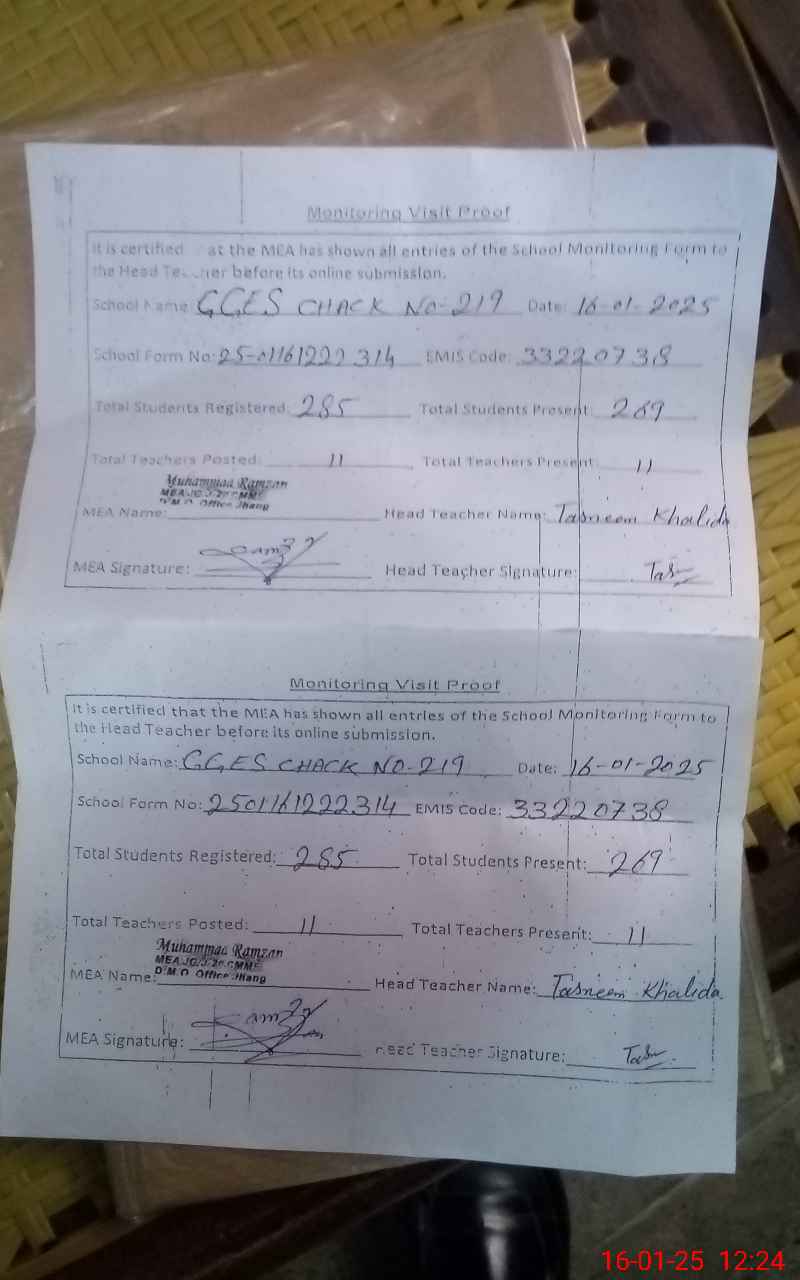 Monitoring Visit Proof
It is certified at the MEA has shown all entries of the School Monitoring Form to
the Head Teacher before its online submission.
School Name: GGES CHACK No-219 Date: 16-01-2025
School Form No: 25-01161222314 EMIS Code: 33220738
Total Students Registered: 285 Total Students Present: 269
Total Teachers Posted: 11 Total Teachers Present: 11
Muhammad Ramzan
D.M.O. Office Jhang
MEA Name: Head Teacher Name: Tasneem Khalida
MEA Signature: Head Teacher Signature: Tas
Monitoring Visit Proof
It is certified that the MEA has shown all entries of the School Monitoring Form to
the Head Teacher before its online submission.
School Name: GGES CHACK NO-219 Date: 16-01-2025
School Form No: 2501161222314 EMIS Code: 33220738
Total Students Registered: 285 Total Students Present: 269
Total Teachers Posted: 11 Total Teachers Present: 11
Muhammad Ramzan
D.M.O. Office Jhang
MEA Name: Head Teacher Name: Tasneem Khalida
MEA Signature: Head Teacher Signature: Tas
16-01-25 12:24